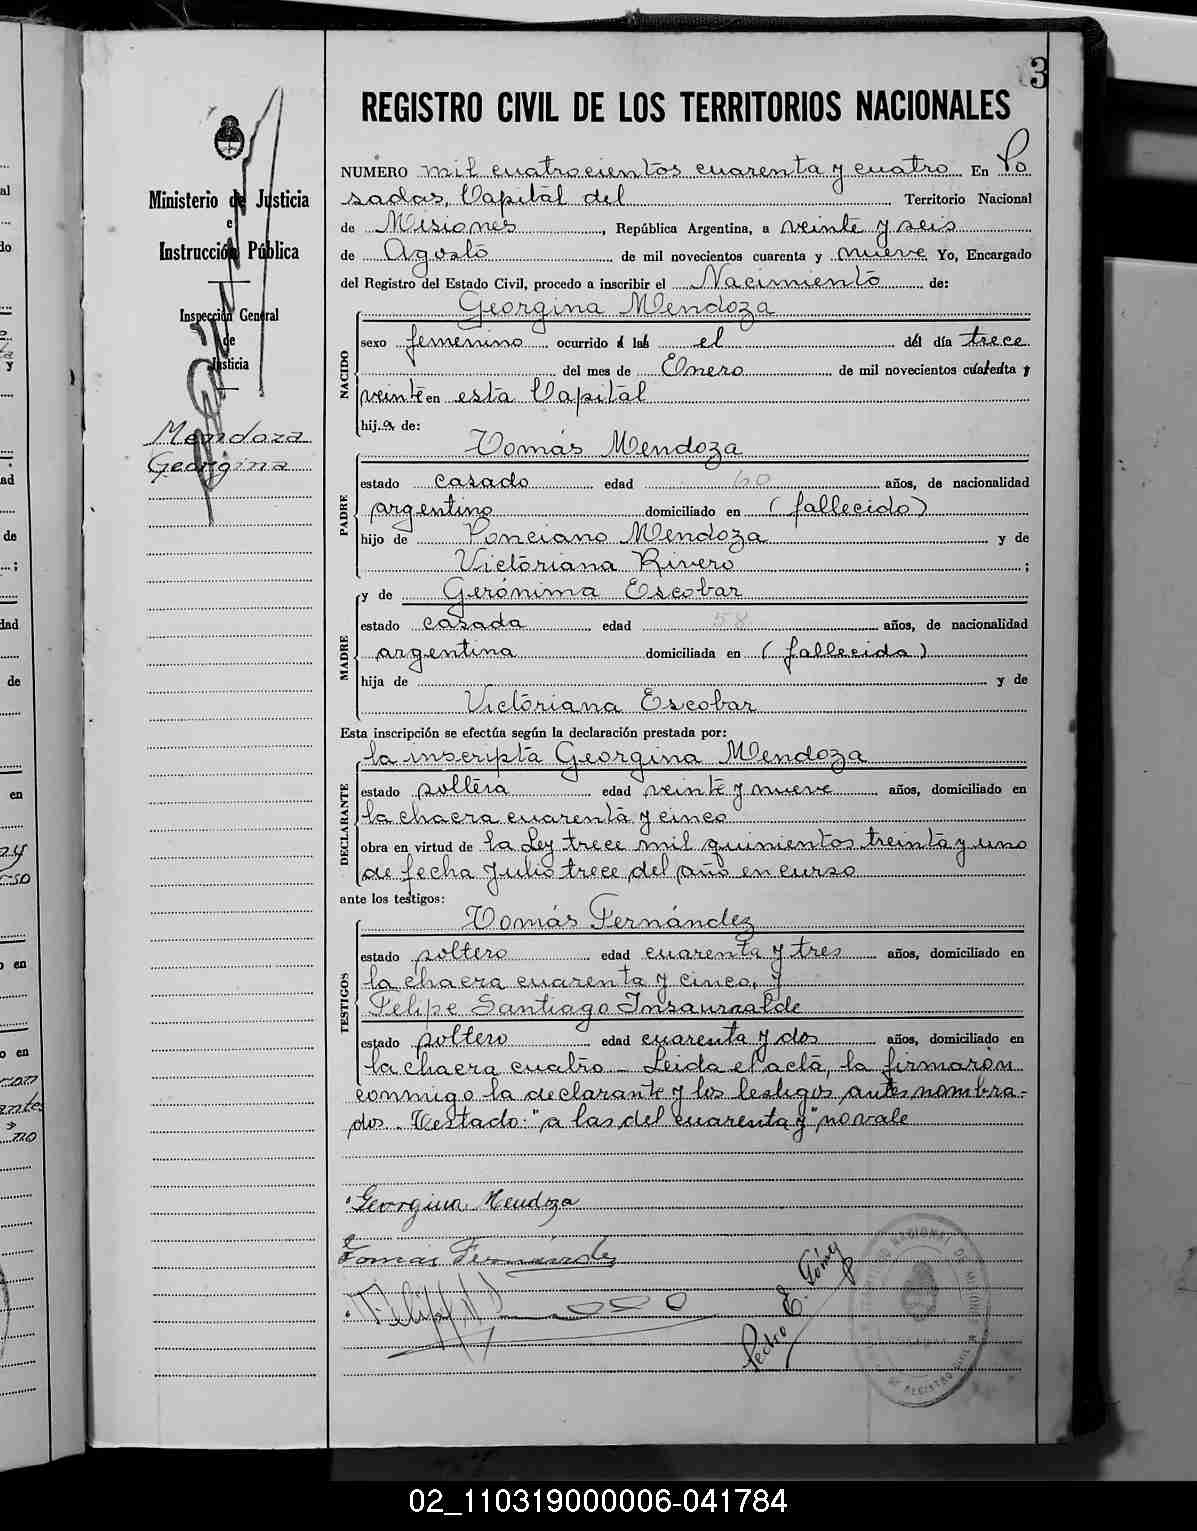 3
REGISTRO CIVIL DE LOS TERRITORIOS NACIONALES
Ministerio de Justicia
e
Instrucción Pública
Inspección General
de
Justicia
Mendoza
Georgina
NUMERO mil cuatrocientos cuarenta y cuatro En Po
sadas, Capital del Territorio Nacional
de Misiones, República Argentina, a veinte y seis
de Agosto de mil novecientos cuarenta y nueve Yo, Encargado
del Registro del Estado Civil, procedo a inscribir el Nacimiento de:
Georgina Mendoza
NACIDO
sexo femenino ocurrido a las el del día trece
del mes de Enero de mil novecientos cuarenta y
veinte en esta Capital
hij.a de:
Tomás Mendoza
PADRE
estado casado edad 60 años, de nacionalidad
argentino domiciliado en (fallecido)
hijo de Ponciano Mendoza y de
Victoriana Rivero ;
y de Gerónima Escobar
MADRE
estado casada edad 58 años, de nacionalidad
argentina domiciliada en (fallecida)
hija de y de
Victoriana Escobar
Esta inscripción se efectúa según la declaración prestada por:
la inscripta Georgina Mendoza
DECLARANTE
estado soltera edad veinte y nueve años, domiciliado en
la chacra cuarenta y cinco
obra en virtud de la Ley trece mil quinientos treinta y uno
de fecha Julio trece del año en curso
ante los testigos:
Tomás Fernández
TESTIGOS
estado soltero edad cuarenta y tres años, domiciliado en
la chacra cuarenta y cinco, y
Felipe Santiago Insaurralde
estado soltero edad cuarenta y dos años, domiciliado en
la chacra cuatro - Leida el acta, la firmaron
conmigo la declarante y los testigos antes nombra-
dos. Testado: "a las del cuarenta y" no vale
Georgina Mendoza
Tomás Fernández
Pedro E. Gómez
REGISTRO CIVIL
02_110319000006-041784